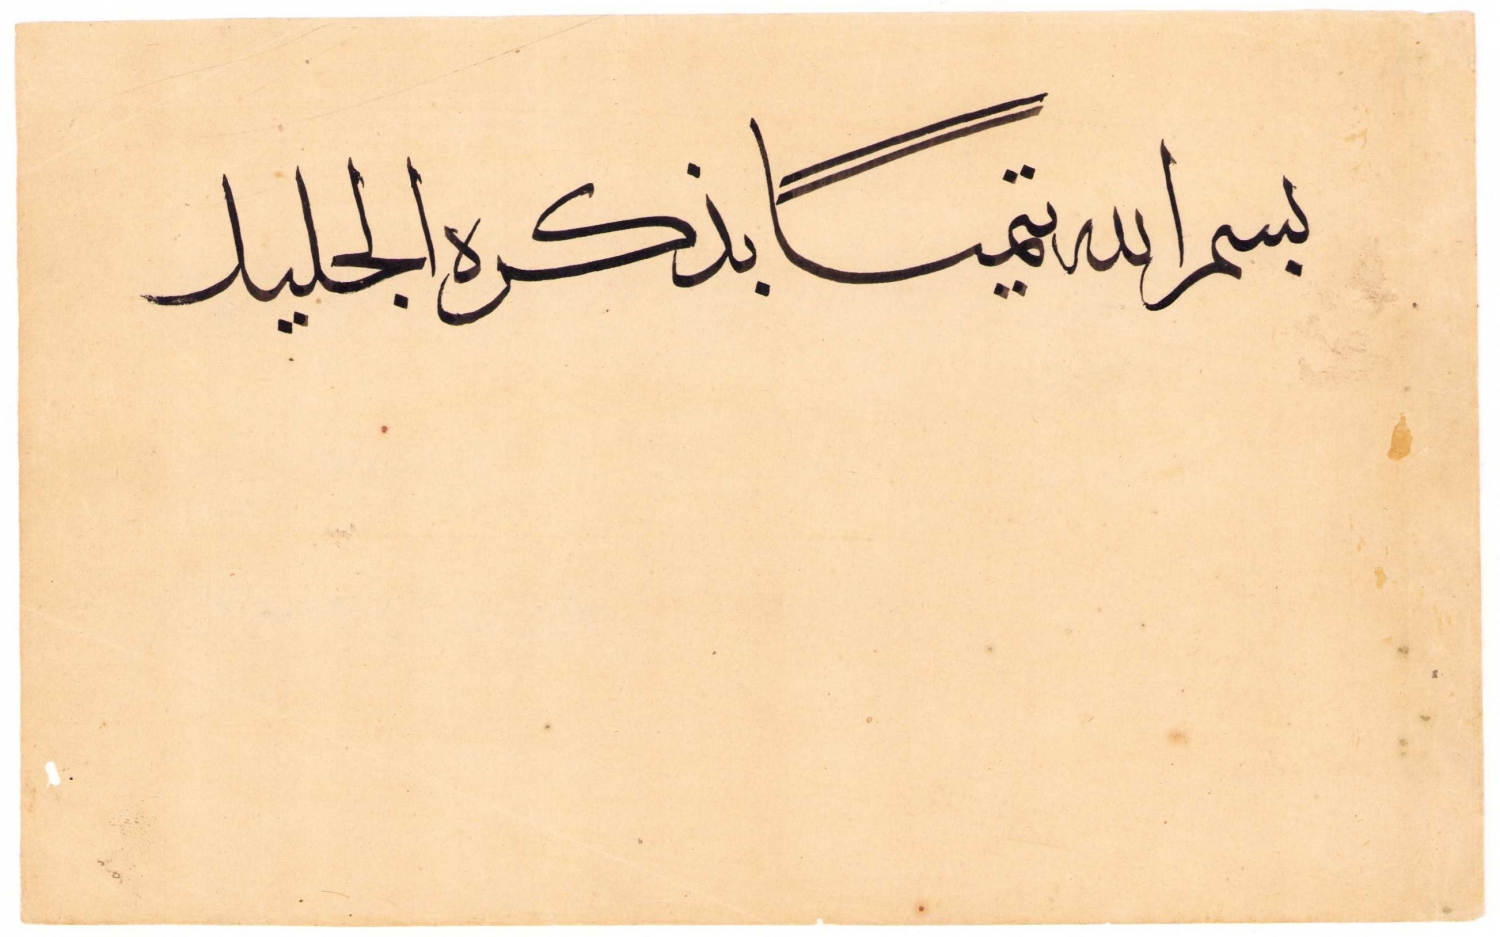 بسم الله تيمناً بذكره الجليل